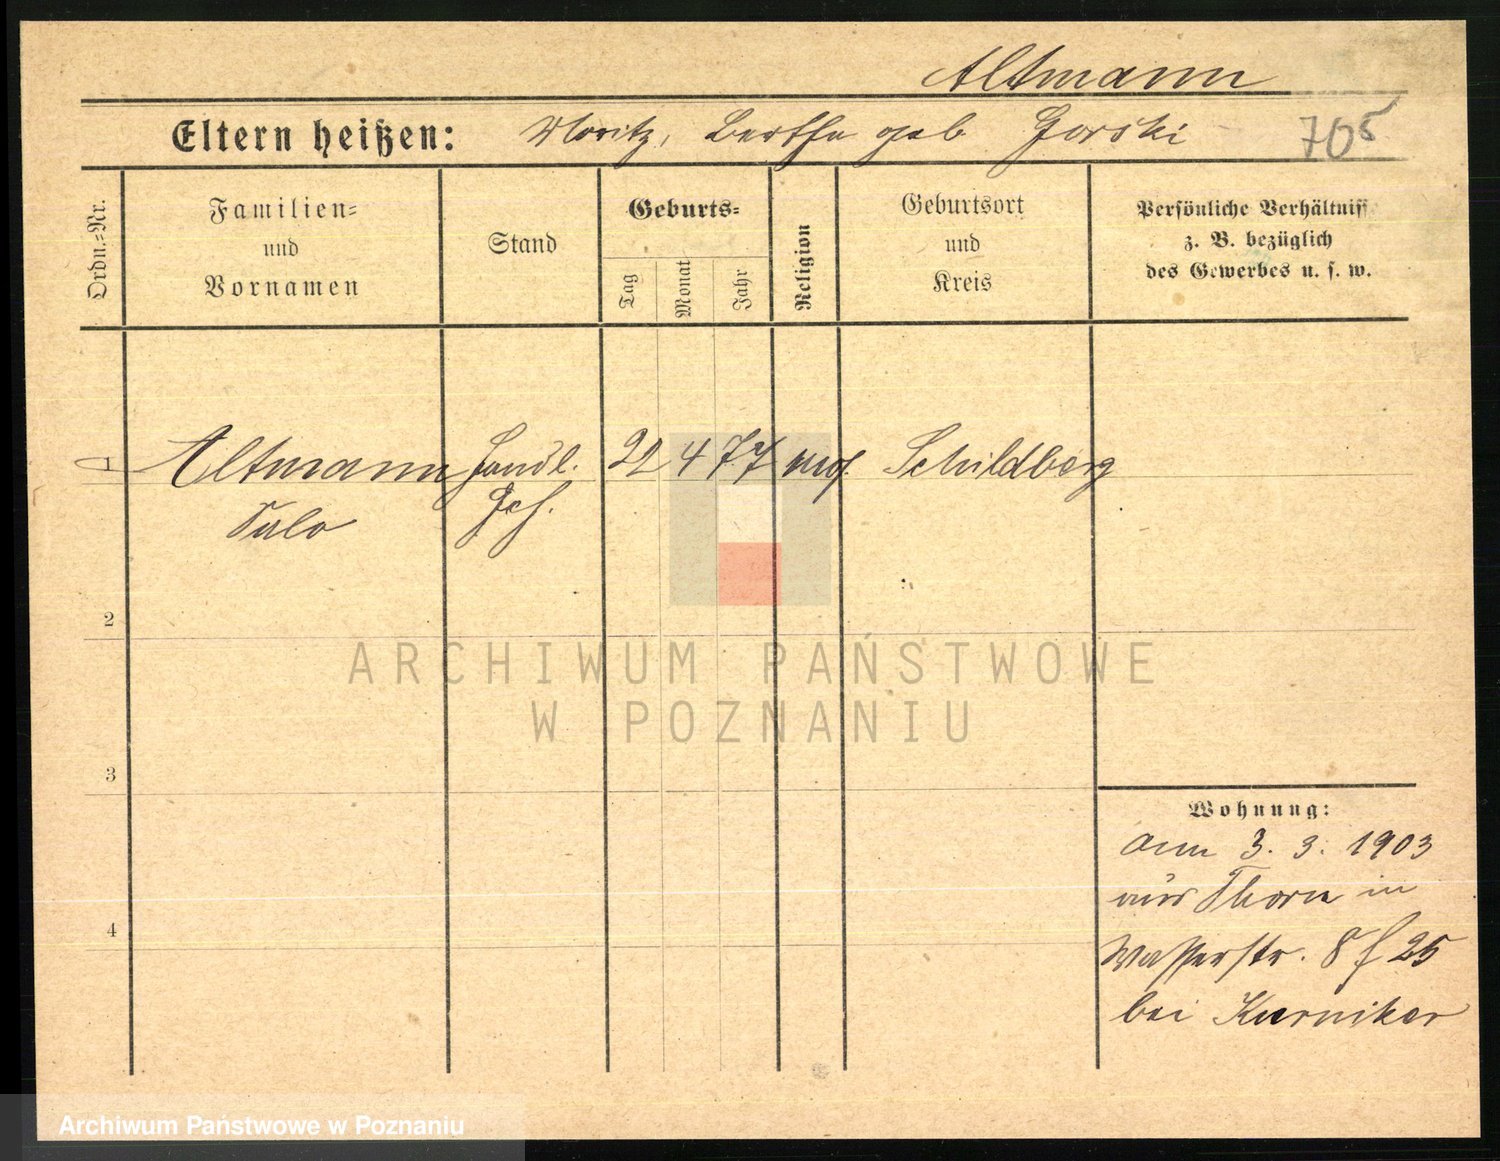 Altmann
Eltern heißen: Moritz, Bertha geb Gorski 705
Ordn.=Nr.
Familien=
und
Vornamen
Stand
Geburts=
Tag
Monat
Jahr
Religion
Geburtsort
und
Kreis
Persönliche Verhältniss
z. B. bezüglich
des Gewerbes u. s. w.
1 Altmann Handl. 22 4 77 mos. Schildberg
Salo Geh.
2
3
4
Wohnung:
Ann 3. 3. 1903
aus Thorn in
Wasserstr. 8 f 25
bei Kurniker
ARCHIWUM PAŃSTWOWE
W POZNANIU
Archiwum Państwowe w Poznaniu